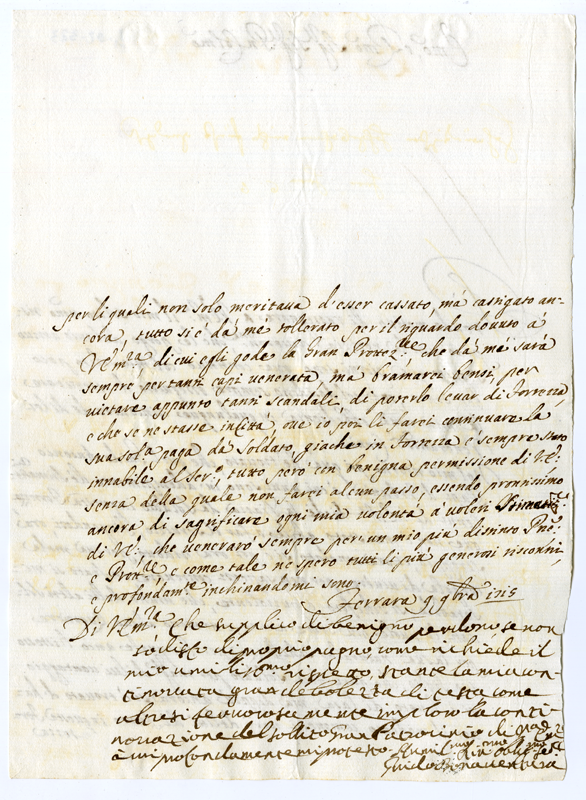 per li quali non solo meritava d'esser cassato, mà castigato an-
cora, tutto si è dà mé tollerato per il riguardo dovuto à
V. Em.za, di cui egli gode la Gran Protez.ne che dà mé sarà
sempre per tanti capi venerata, mà bramarei bensi per
vietare appunto tanti scandali di poterlo levar di Fortezza
e che se ne stasse in Città, ove io poi li farei continuare la
sua sola paga dà Soldato, giache in Fortezza è sempre stato
innabile al Ser.o, tutto però con benigna permissione di V.E.
senza della quale non farei alcun passo, essendo prontissimo
ancora di sagrificare ogni mia volontà à voleri
di V.E. che venerarò sempre per un mio più distinto Pne
e Prott.re e come tale ne spero tutti li più generosi riscontri,
e profondam.te inchinandomi sono.
Ferrara 9 9bre 1715
Di V. Em.za Che supplico di benigno perdono, se non
sodisfo di proprio pugno come richiede il
mio umilissimo rispetto, stante la mia con-
tinovata gran debolezza di testa come
altresi fervorosamente imploro la conti-
novazione del solito gran Patrocinio di
à cui profondamente mi protesto
Guido Bonaventura